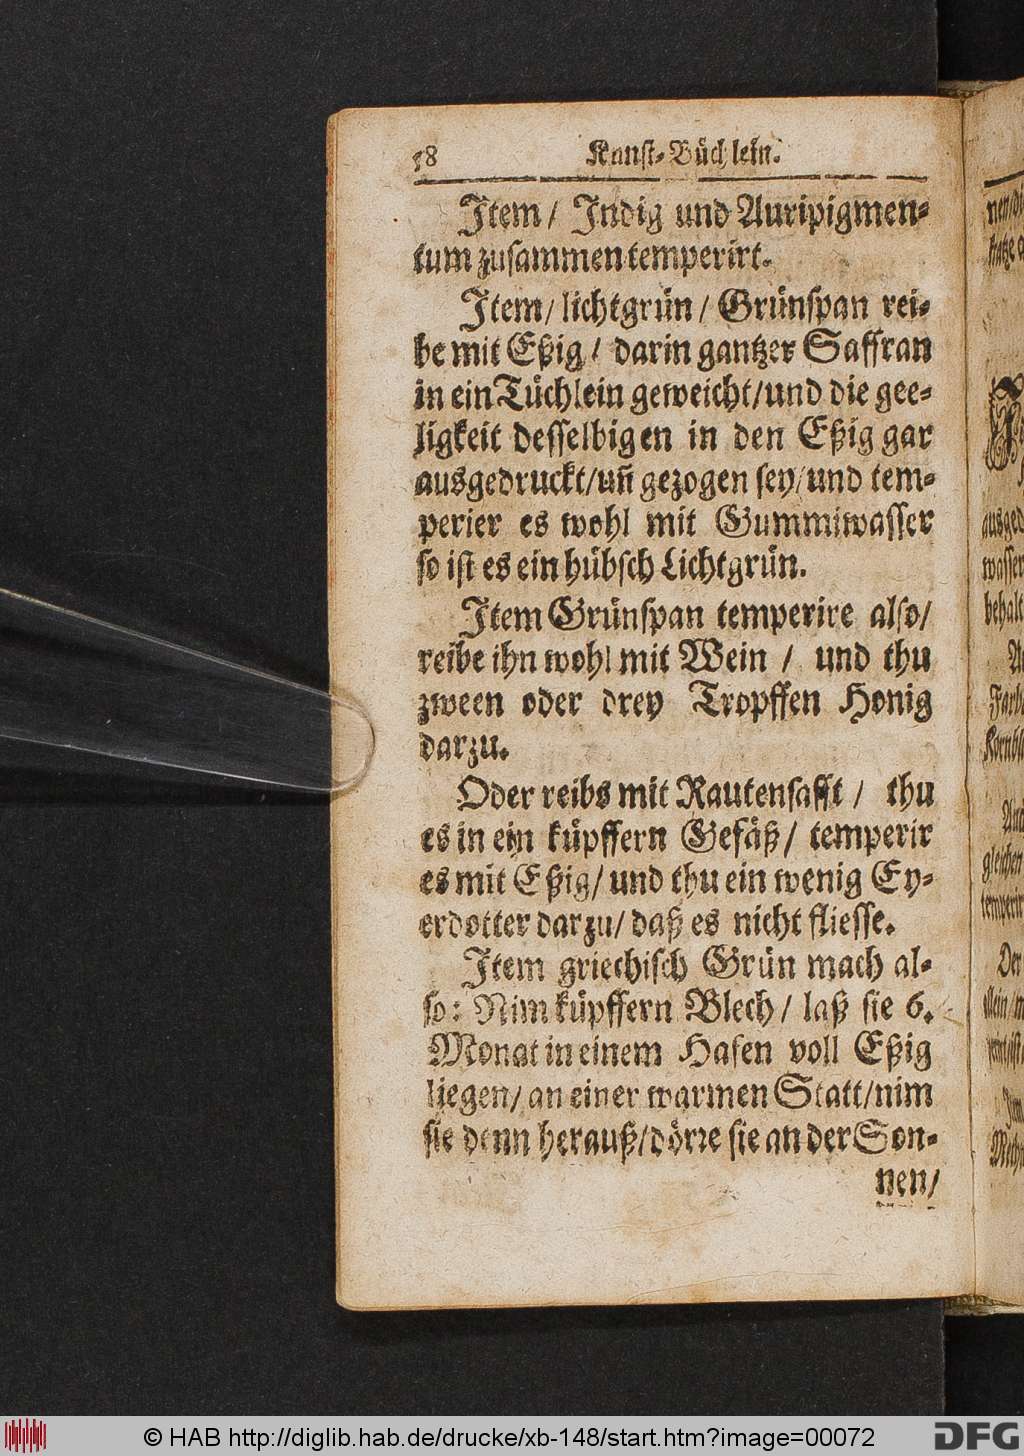 58 Kunst-Büchlein.
Item / Indig und Auripigmen-
tum zusammen temperirt.
Item / lichtgrün / Grünspan rei-
be mit Eßig / darin gantzer Saffran
in ein Tüchlein geweicht / und die gee-
ligkeit desselbigen in den Eßig gar
ausgedruckt / uñ gezogen sey / und tem-
perier es wohl mit Gummiwasser
so ist es ein hübsch Lichtgrün.
Item Grünspan temperire also /
reibe ihn wohl mit Wein / und thu
zween oder drey Tropffen Honig
darzu.
Oder reibs mit Rautensafft / thu
es in ein küpffern Gefäß / temperir
es mit Eßig / und thu ein wenig Ey-
erdotter darzu / daß es nicht fliesse.
Item griechisch Grün mach al-
so: Nim küpffern Blech / laß sie 6.
Monat in einem Hafen voll Eßig
liegen / an einer warmen Statt / nim
sie denn herauß / dörre sie an der Son-
nen /
© HAB http://diglib.hab.de/drucke/xb-148/start.htm?image=00072
DFG